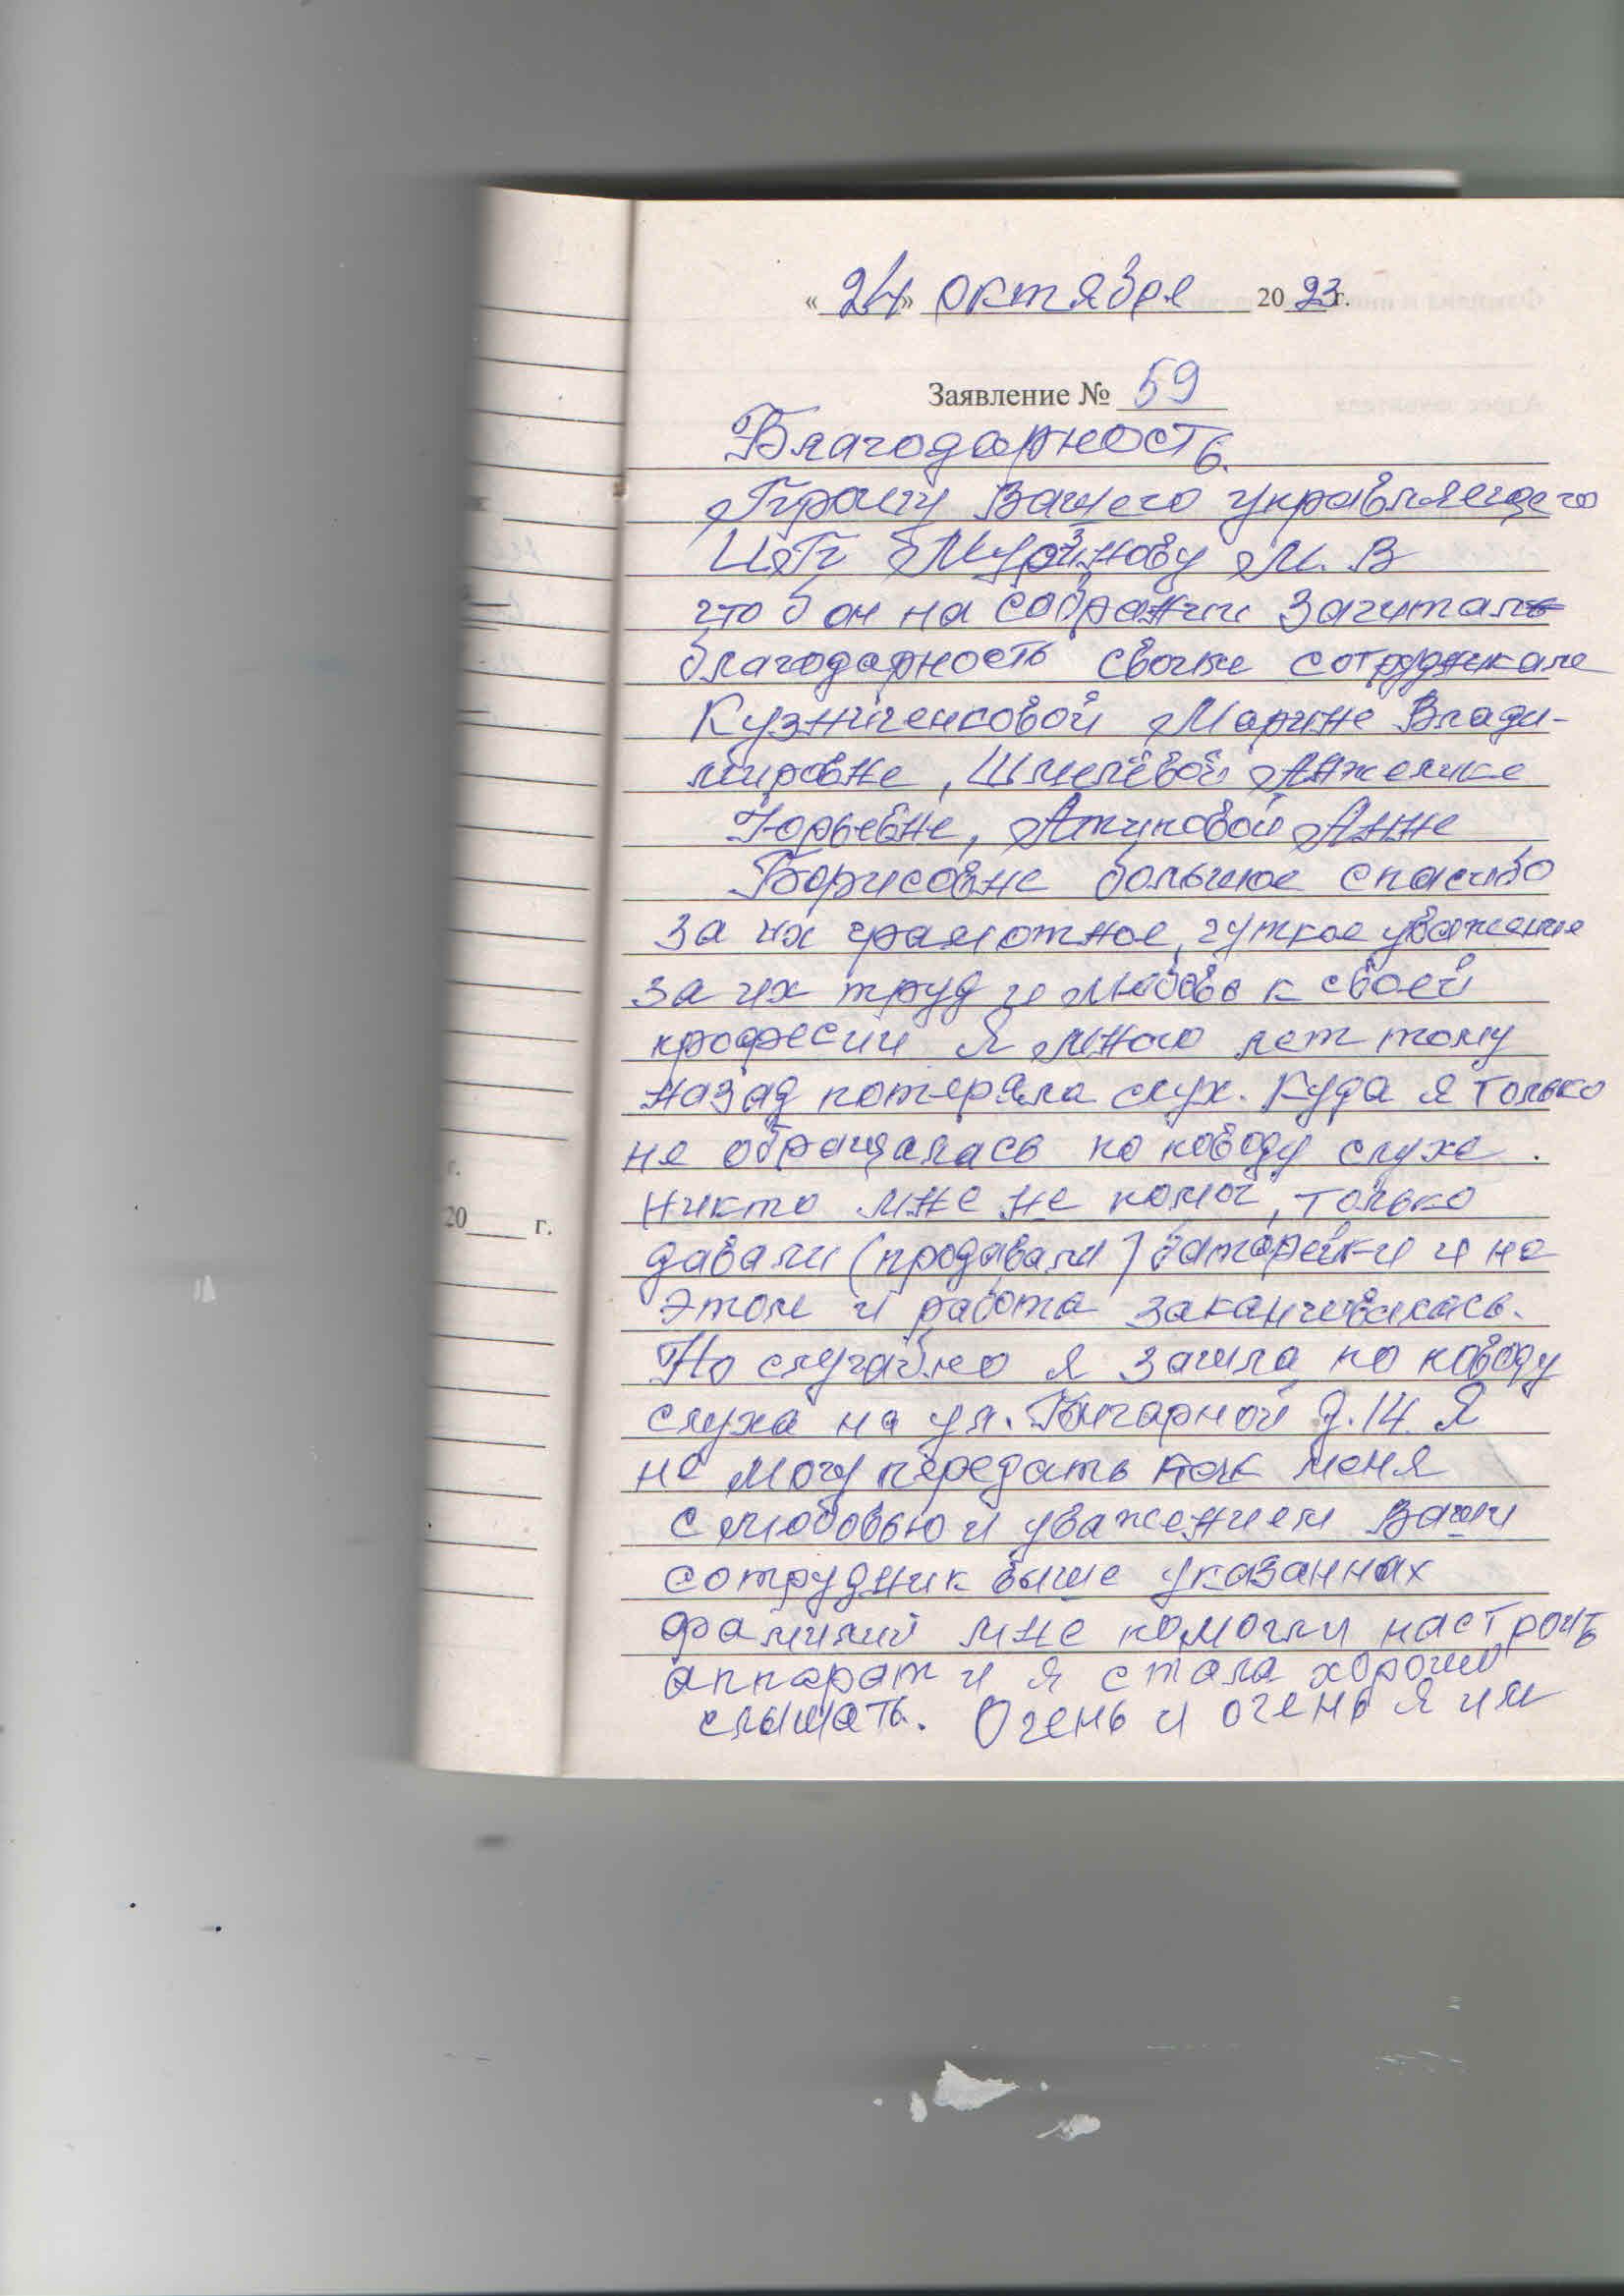 «24» октября 2023г.
Заявление № 59
Благодарность.
Прошу Вашего управляющего
М. В
что б он на собрании зачитал
благодарность своим сотрудникам
Кузниченковой Марине Влади-
мировне, Шмелёвой Анжелике
Юрьевне, Атиповой Анне
Борисовне большое спасибо
за их грамотное, чуткое уважение
за их труд и любовь к своей
професии Я много лет тому
назад потеряла слух. Куда я только
не обращалась по поводу слуха.
никто мне не помог, только
давали (продавали) батарейки и на
этом и работа заканчивалась.
Но случайно я зашла по поводу
слуха на ул. д. 14. Я
не могу передать как меня
с любовью и уважением Ваши
сотрудник выше указанных
фамилий мне помогли настроить
аппарат и я стала хорошо
слышать. Очень и очень я им
20____ г.
г.